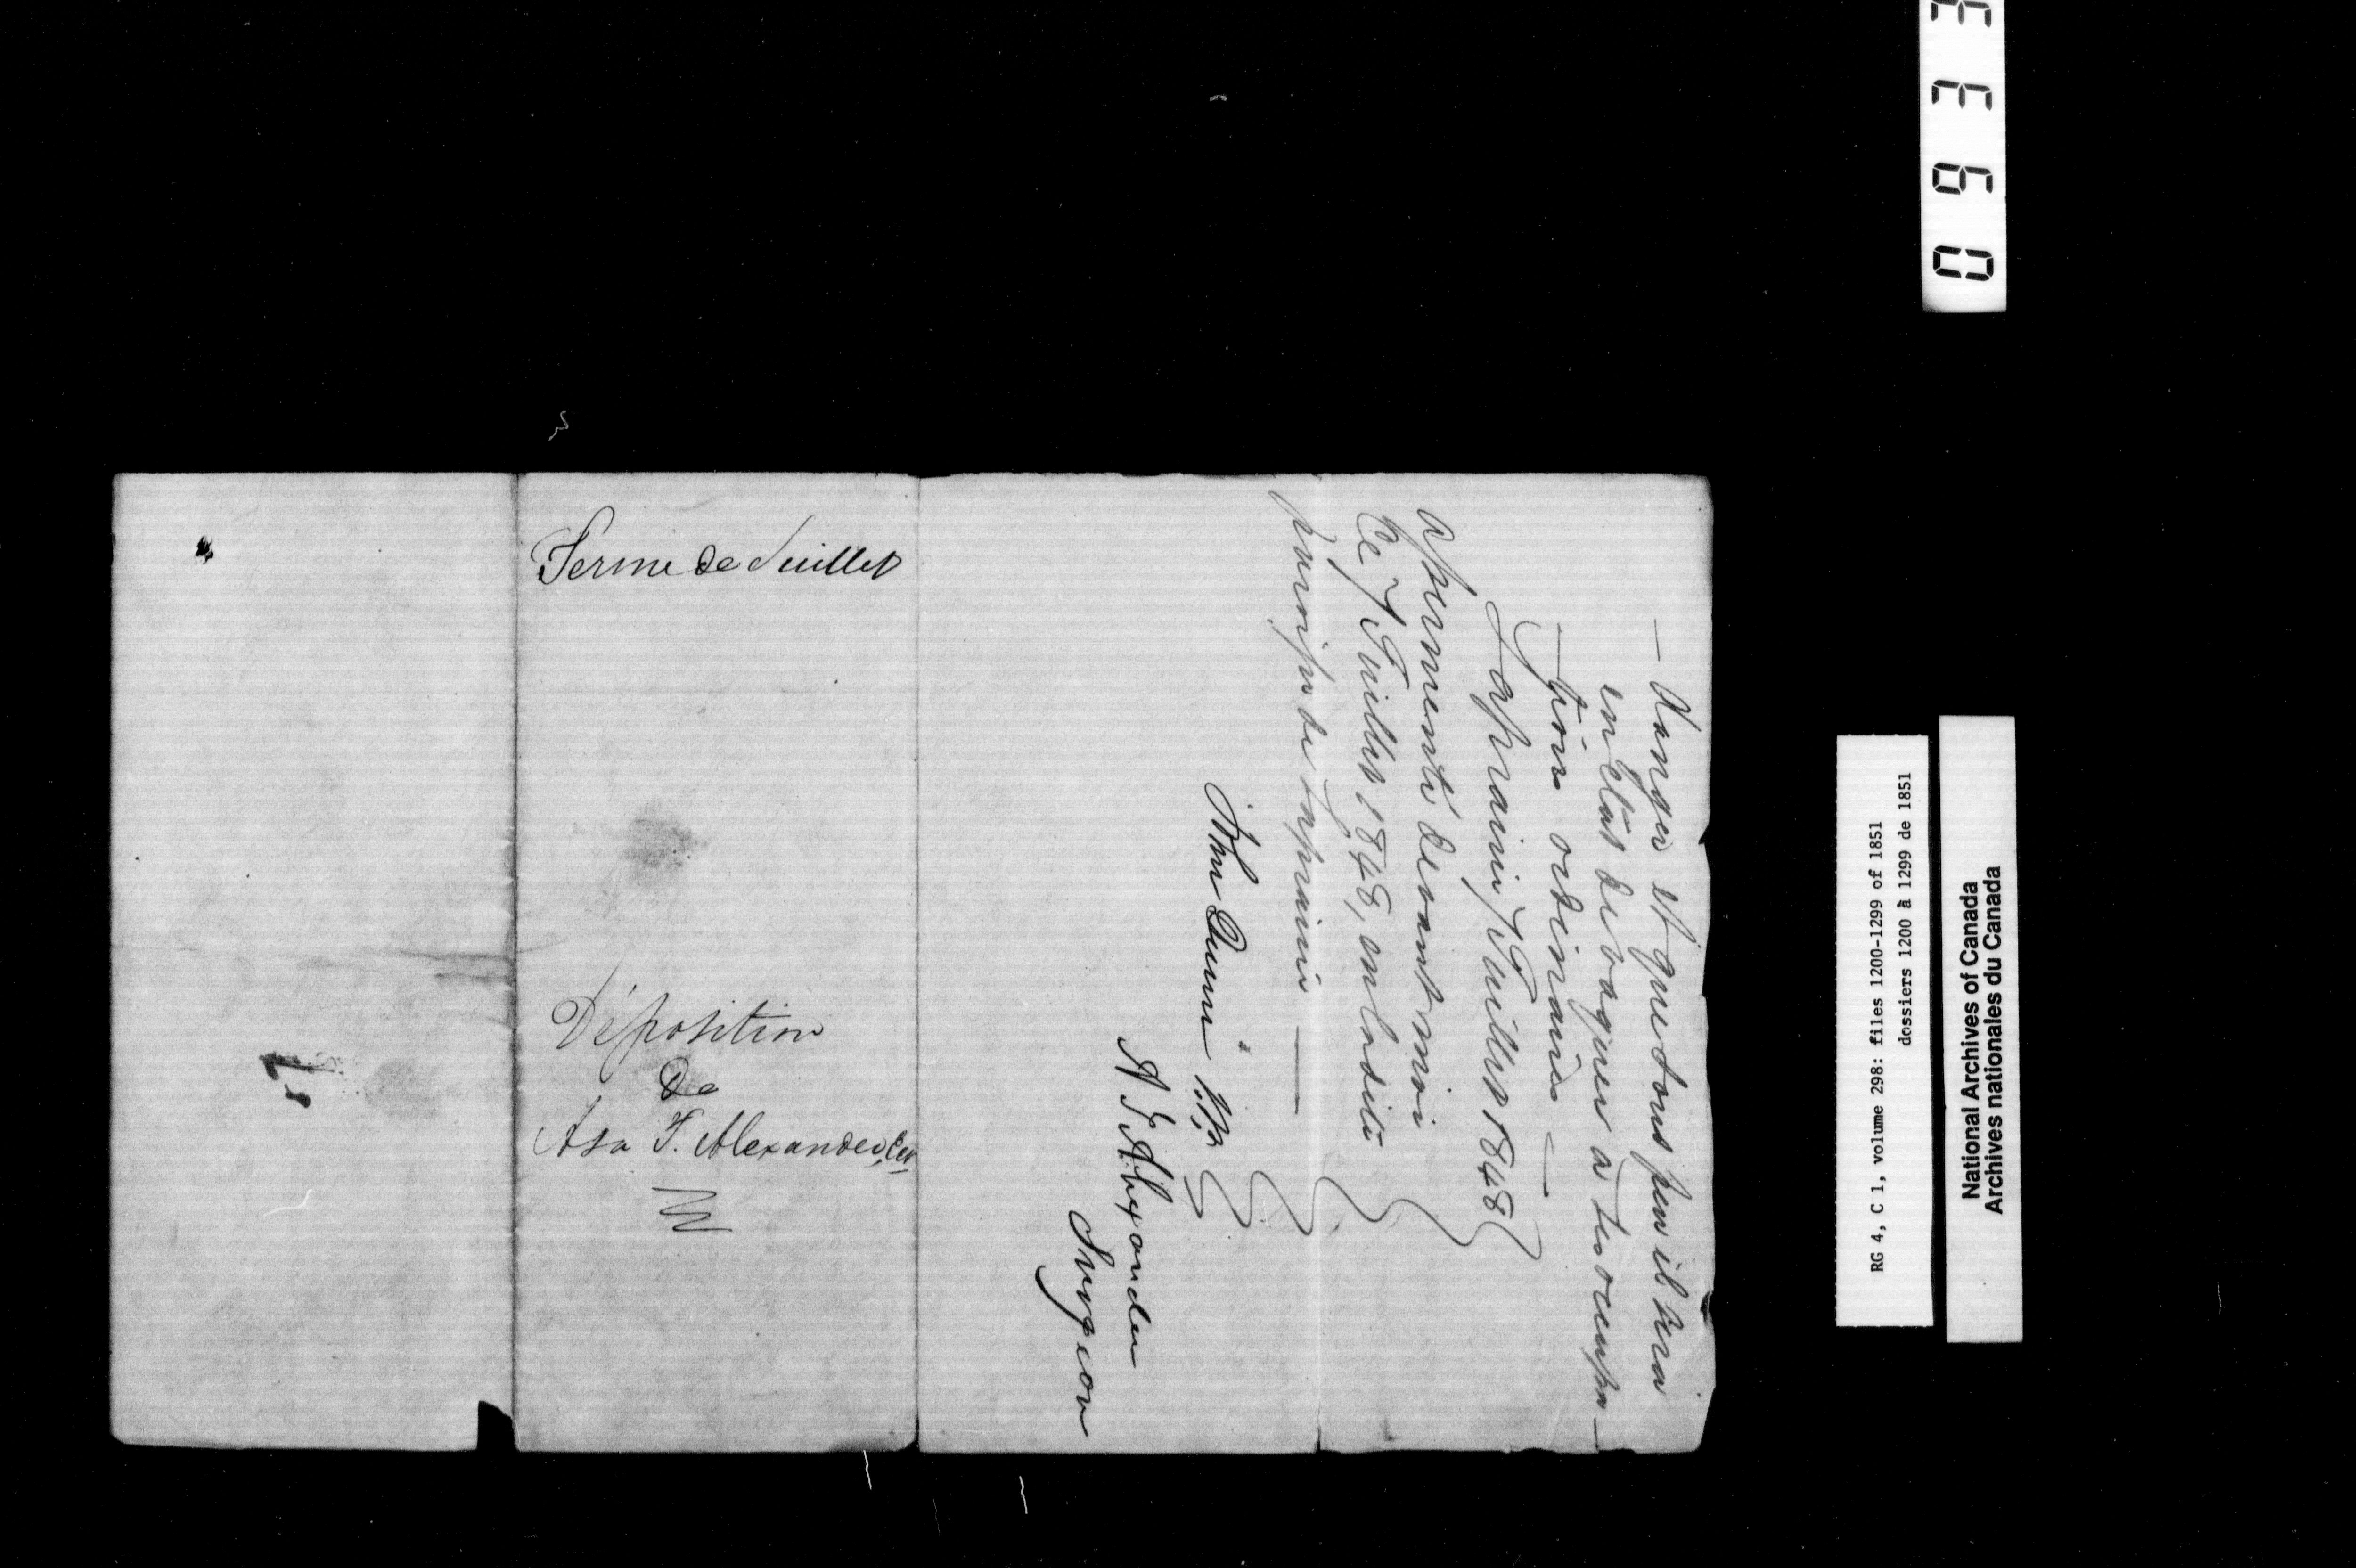 Terme de Juillet
Déposition
De
Asa F. Alexander, Cer
— danger et que dans peu il sera
en état de vaquer a ses occupa—
—tions ordinaires —
Laprairie 7 Juillet 1848
assermenté devant moi
Ce 7 Juillet 1848, en ladite
paroisse de Laprairie —
John Dunn J.P.
A F Alexander
Surgeon
0933
RG 4, C 1, volume 298: files 1200-1299 of 1851
dossiers 1200 à 1299 de 1851
National Archives of Canada
Archives nationales du Canada